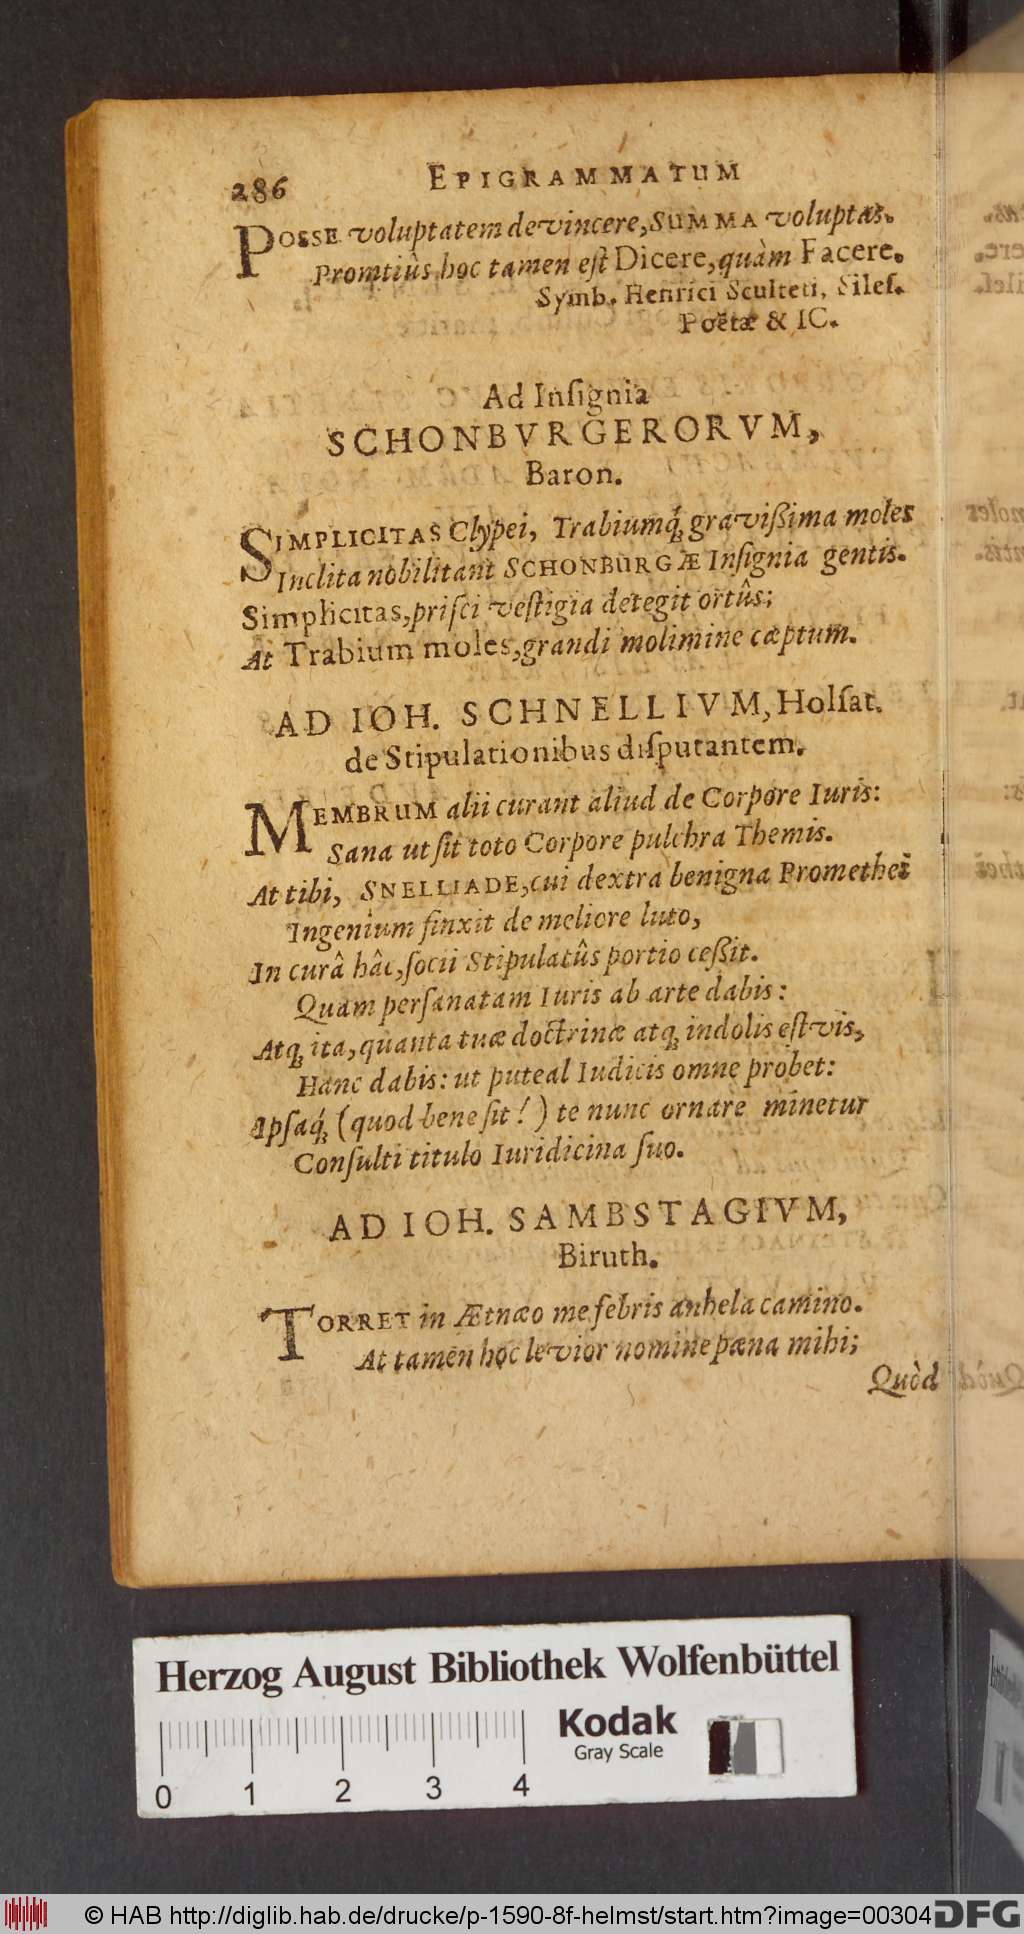 286 EPIGRAMMATUM
POSSE voluptatem devincere, SUMMA voluptas.
Promtiùs hoc tamen eſt Dicere, quàm Facere.
Symb. Henrici Sculteti, Sileſ.
Poëtæ & IC.
Ad Inſignia
SCHONBVRGERORVM,
Baron.
SIMPLICITAS Clypei, Trabiumq́; graviſſima moles
Inclita nobilitant SCHONBURGÆ Inſignia gentis.
Simplicitas, priſci veſtigia detegit ortûs;
At Trabium moles, grandi molimine cæptum.
AD IOH. SCHNELLIVM, Holſat.
de Stipulationibus diſputantem.
MEMBRUM alii curant aliud de Corpore Iuris:
Sana ut ſit toto Corpore pulchra Themis.
At tibi, SNELLIADE, cui dextra benigna Promethei
Ingenium finxit de meliore luto,
In curâ hâc, ſocii Stipulatûs portio ceſſit.
Quam perſanatam Iuris ab arte dabis:
Atq; ita, quanta tuæ doctrinæ atq; indolis eſt vis,
Hanc dabis: ut puteal Iudicis omne probet:
Ipſaq́; (quod bene ſit!) te nunc ornare minetur
Conſulti titulo Iuridicina ſuo.
AD IOH. SAMBSTAGIVM,
Biruth.
TORRET in Ætnæo me febris anhela camino.
At tamen hoc levior nomine pæna mihi;
Quòd
Herzog August Bibliothek Wolfenbüttel
Kodak
Gray Scale
0 1 2 3 4
© HAB http://diglib.hab.de/drucke/p-1590-8f-helmst/start.htm?image=00304 DFG